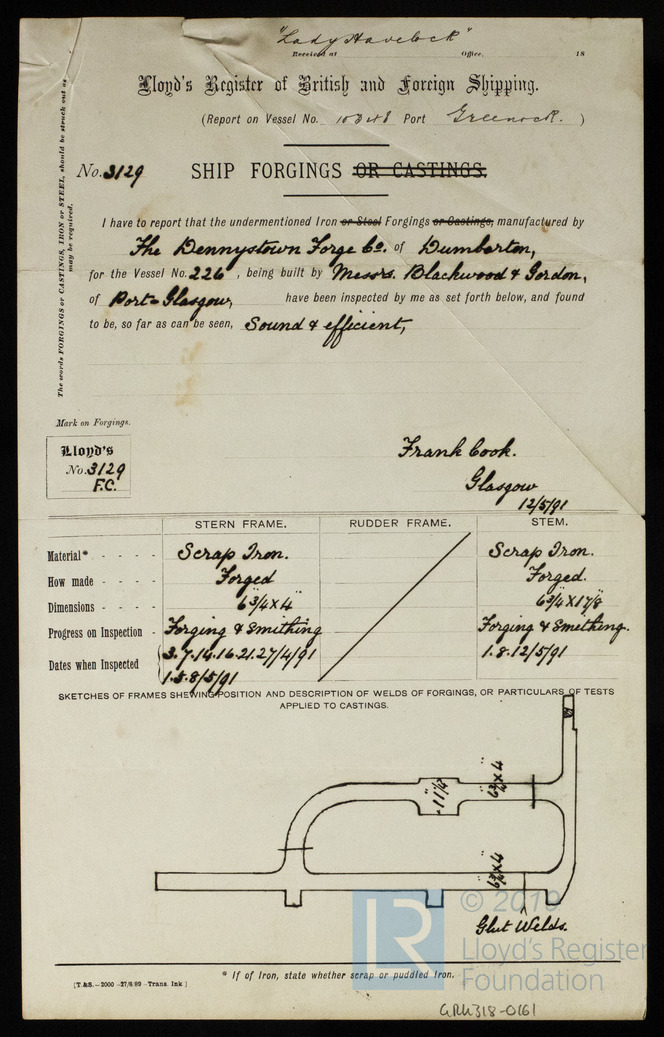 "Lady Havelock"
Received at Office, 18
Lloyd's Register of British and Foreign Shipping.
(Report on Vessel No. 10348 Port Greenock. )
No. 3129 SHIP FORGINGS OR CASTINGS.
The words FORGINGS or CASTINGS, IRON or STEEL, should be struck out as
may be required.
I have to report that the undermentioned Iron or Steel Forgings or Castings, manufactured by
The Dennystown Forge Co. of Dumbarton,
for the Vessel No. 226, being built by Messrs. Blackwood & Gordon,
of Port-Glasgow, have been inspected by me as set forth below, and found
to be, so far as can be seen, Sound & efficient,
Mark on Forgings.
Lloyd's
No. 3129
F.C.
Frank Cook.
Glasgow
12/5/91
STERN FRAME. RUDDER FRAME. STEM.
Material* - - - - Scrap Iron. Scrap Iron.
How made - - - - Forged Forged.
Dimensions - - - - 6¾" x 4" 6¾" x 1⅞"
Progress on Inspection - Forging & Smithing Forging & Smithing.
Dates when Inspected 3.7.14.16.21.27/4/91 1.8.12/5/91
1.5.8/5/91
SKETCHES OF FRAMES SHEWING POSITION AND DESCRIPTION OF WELDS OF FORGINGS, OR PARTICULARS OF TESTS
APPLIED TO CASTINGS.
11¼"
6¾" x 4"
6¾" x 4"
Glut Welds.
LR
© 2019
Lloyd's Register
Foundation
* If of Iron, state whether scrap or puddled Iron.
[T.&S.-2000-27/8/89-Trans. Ink]
GRK318-0161